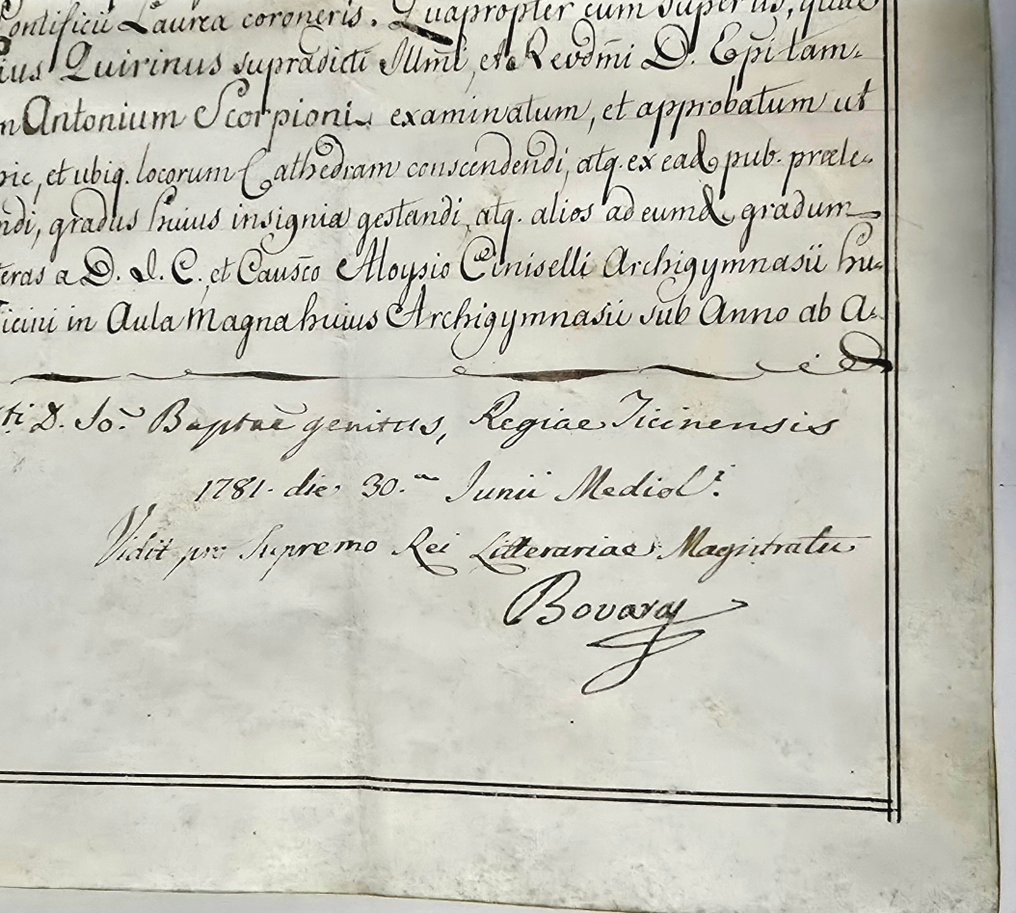 Pontificii Laurea coroneris. Quapropter cum super iis, quae
ius Quirinus supradicti Illm̄i, et Revdm̄i D. Epi tam-
m Antonium Scorpioni examinatum, et approbatum ut
hic, et ubiq. locorum Cathedram conscendendi, atq. ex ead. pub. præle-
ndi, gradus huius insignia gestandi, atq. alios ad eumd. gradum
teras a D. I. C., et Caus̄co Aloysio Ciniselli Archigymnasii hu-
Ticini in Aula Magna huius Archigymnasii sub Anno ab A-
ti D. Jo. Baptae genitus, Regiae Ticinensis
1781. die 30.ª Junii Mediol.i
Vidit pro Supremo Rei Litterariae Magistratu
Bovara